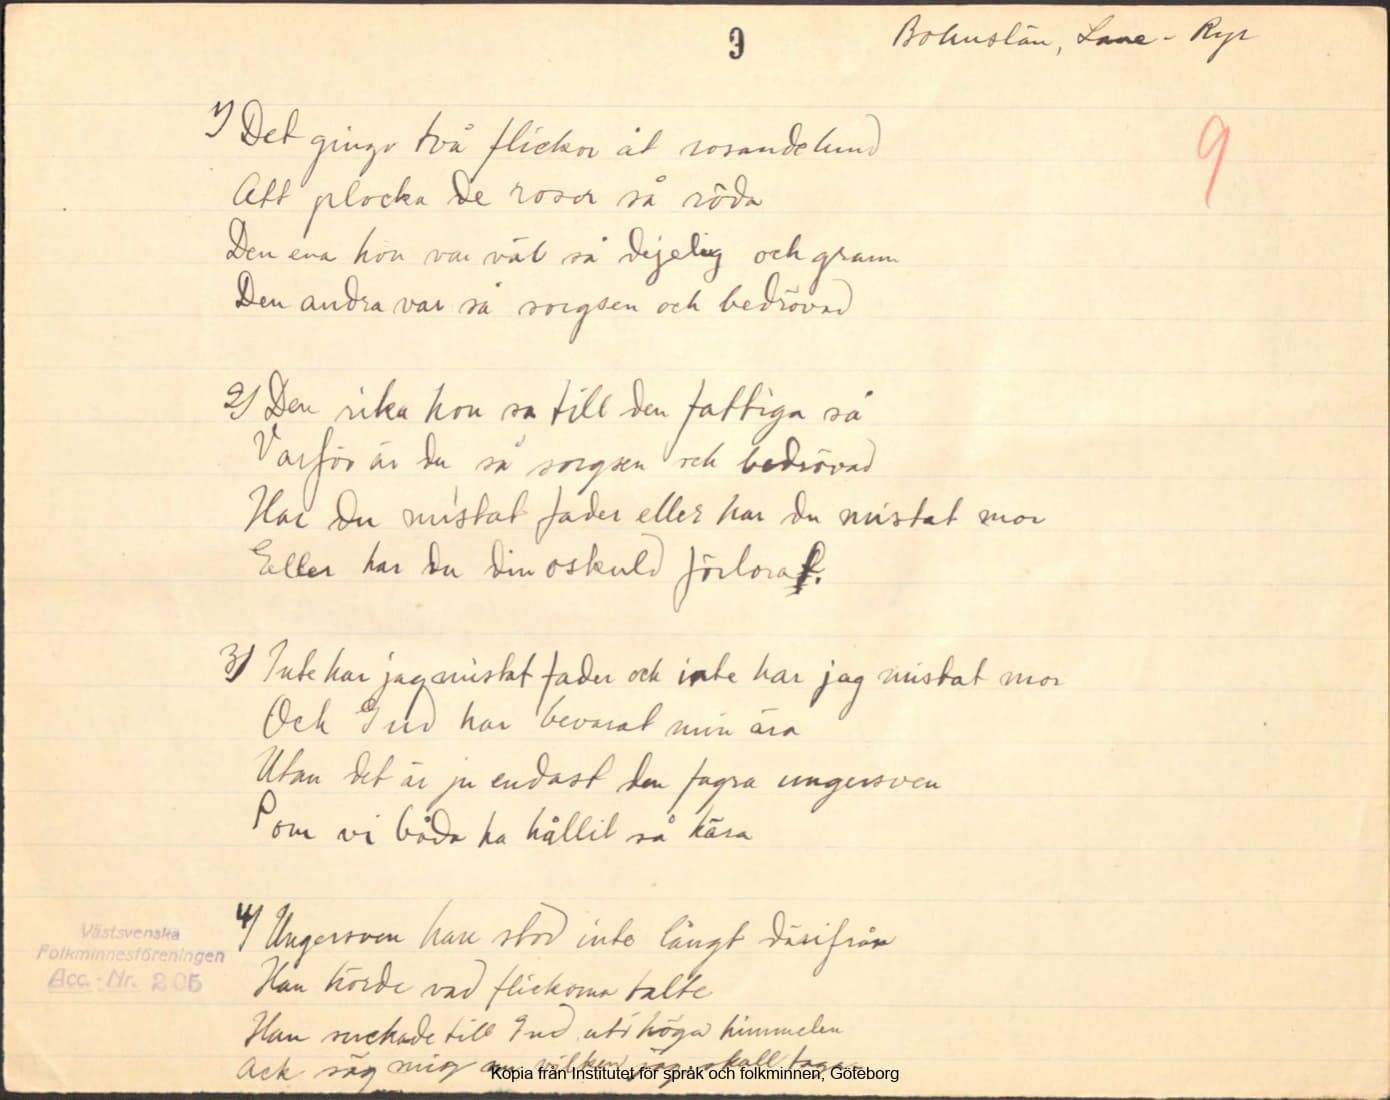 9
Bohuslän, Lane-Ryr
9
1) Det gingo två flickor åt rosandelund
Att plocka de rosor så röda
Den ena hon var väl så dejelig och grann
Den andra var så sorgsen och bedrövad
2) Den rika hon sa till den fattiga så
Varför är du så sorgsen och bedrövad
Har du mistat fader eller har du mistat mor
Eller har du din oskuld förlorat.
3) Inte har jag mistat fader och inte har jag mistat mor
Och Gud har bevarat min ära
Utan det är ju endast den fagra ungersven
Som vi båda ha hållit så kära
4) Ungersven han stod inte långt därifrån
Han hörde vad flickorna talte
Han suckade till Gud uti höga himmelen
Ack säg mig nu vilken jag skall taga
Västsvenska
Folkminnesföreningen
Acc.-Nr. 205
Kopia från Institutet för språk och folkminnen, Göteborg